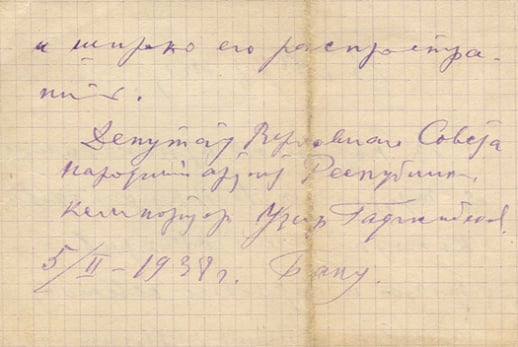 и широко его распростра-
нить.
Депутат Верховного Совета
народный артист Республики,
композитор Узеир Гаджибеков.
5/II-1938 г. Баку.